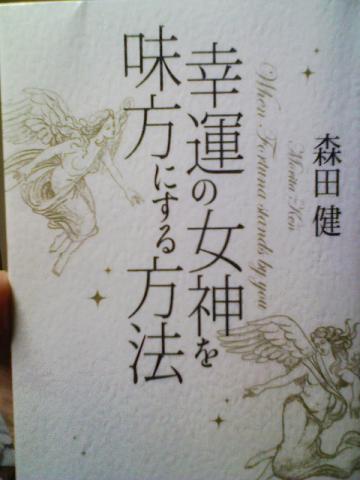 幸運の女神を
味方にする方法
When Fortuna stands by you
森田健
Morita Ken